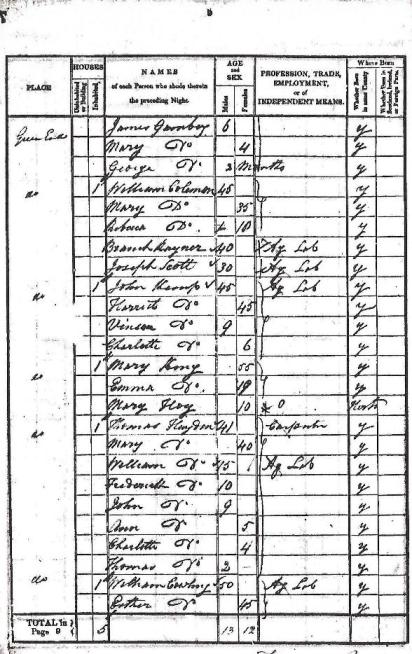 PLACE
HOUSES
Uninhabited or Building
Inhabited
NAMES
of each Person who abode therein the preceding Night.
AGE and SEX
Males
Females
PROFESSION, TRADE, EMPLOYMENT, or of INDEPENDENT MEANS.
Where Born
Whether Born in same County
Whether Born in Scotland, Ireland, or Foreign Parts.
Green End James 6 y
Mary Do 4 y
George Do 2 Months y
do 1 William Coleman 45 y
Mary Do 35 y
Rebecca Do 18 y
Branch Rayner 40 Ag Lab y
Joseph Scott 30 Ag Lab y
do 1 John Kemp 45 Ag Lab y
Harriet Do 45 y
Vinson Do 9 y
Charlotte Do 6 y
do 1 Mary King 55 y
Emma Do 19 y
Mary Hoy 10 North
do 1 Thomas Haydon 41 Carpenter y
Mary Do 40 y
William Do 15 Ag Lab y
Frederick Do 10 y
John Do 9 y
Ann Do 5 y
Charlotte Do 4 y
Thomas Do 2 y
do 1 William 50 Ag Lab y
Esther Do 45 y
TOTAL in Page 9 5 13 12